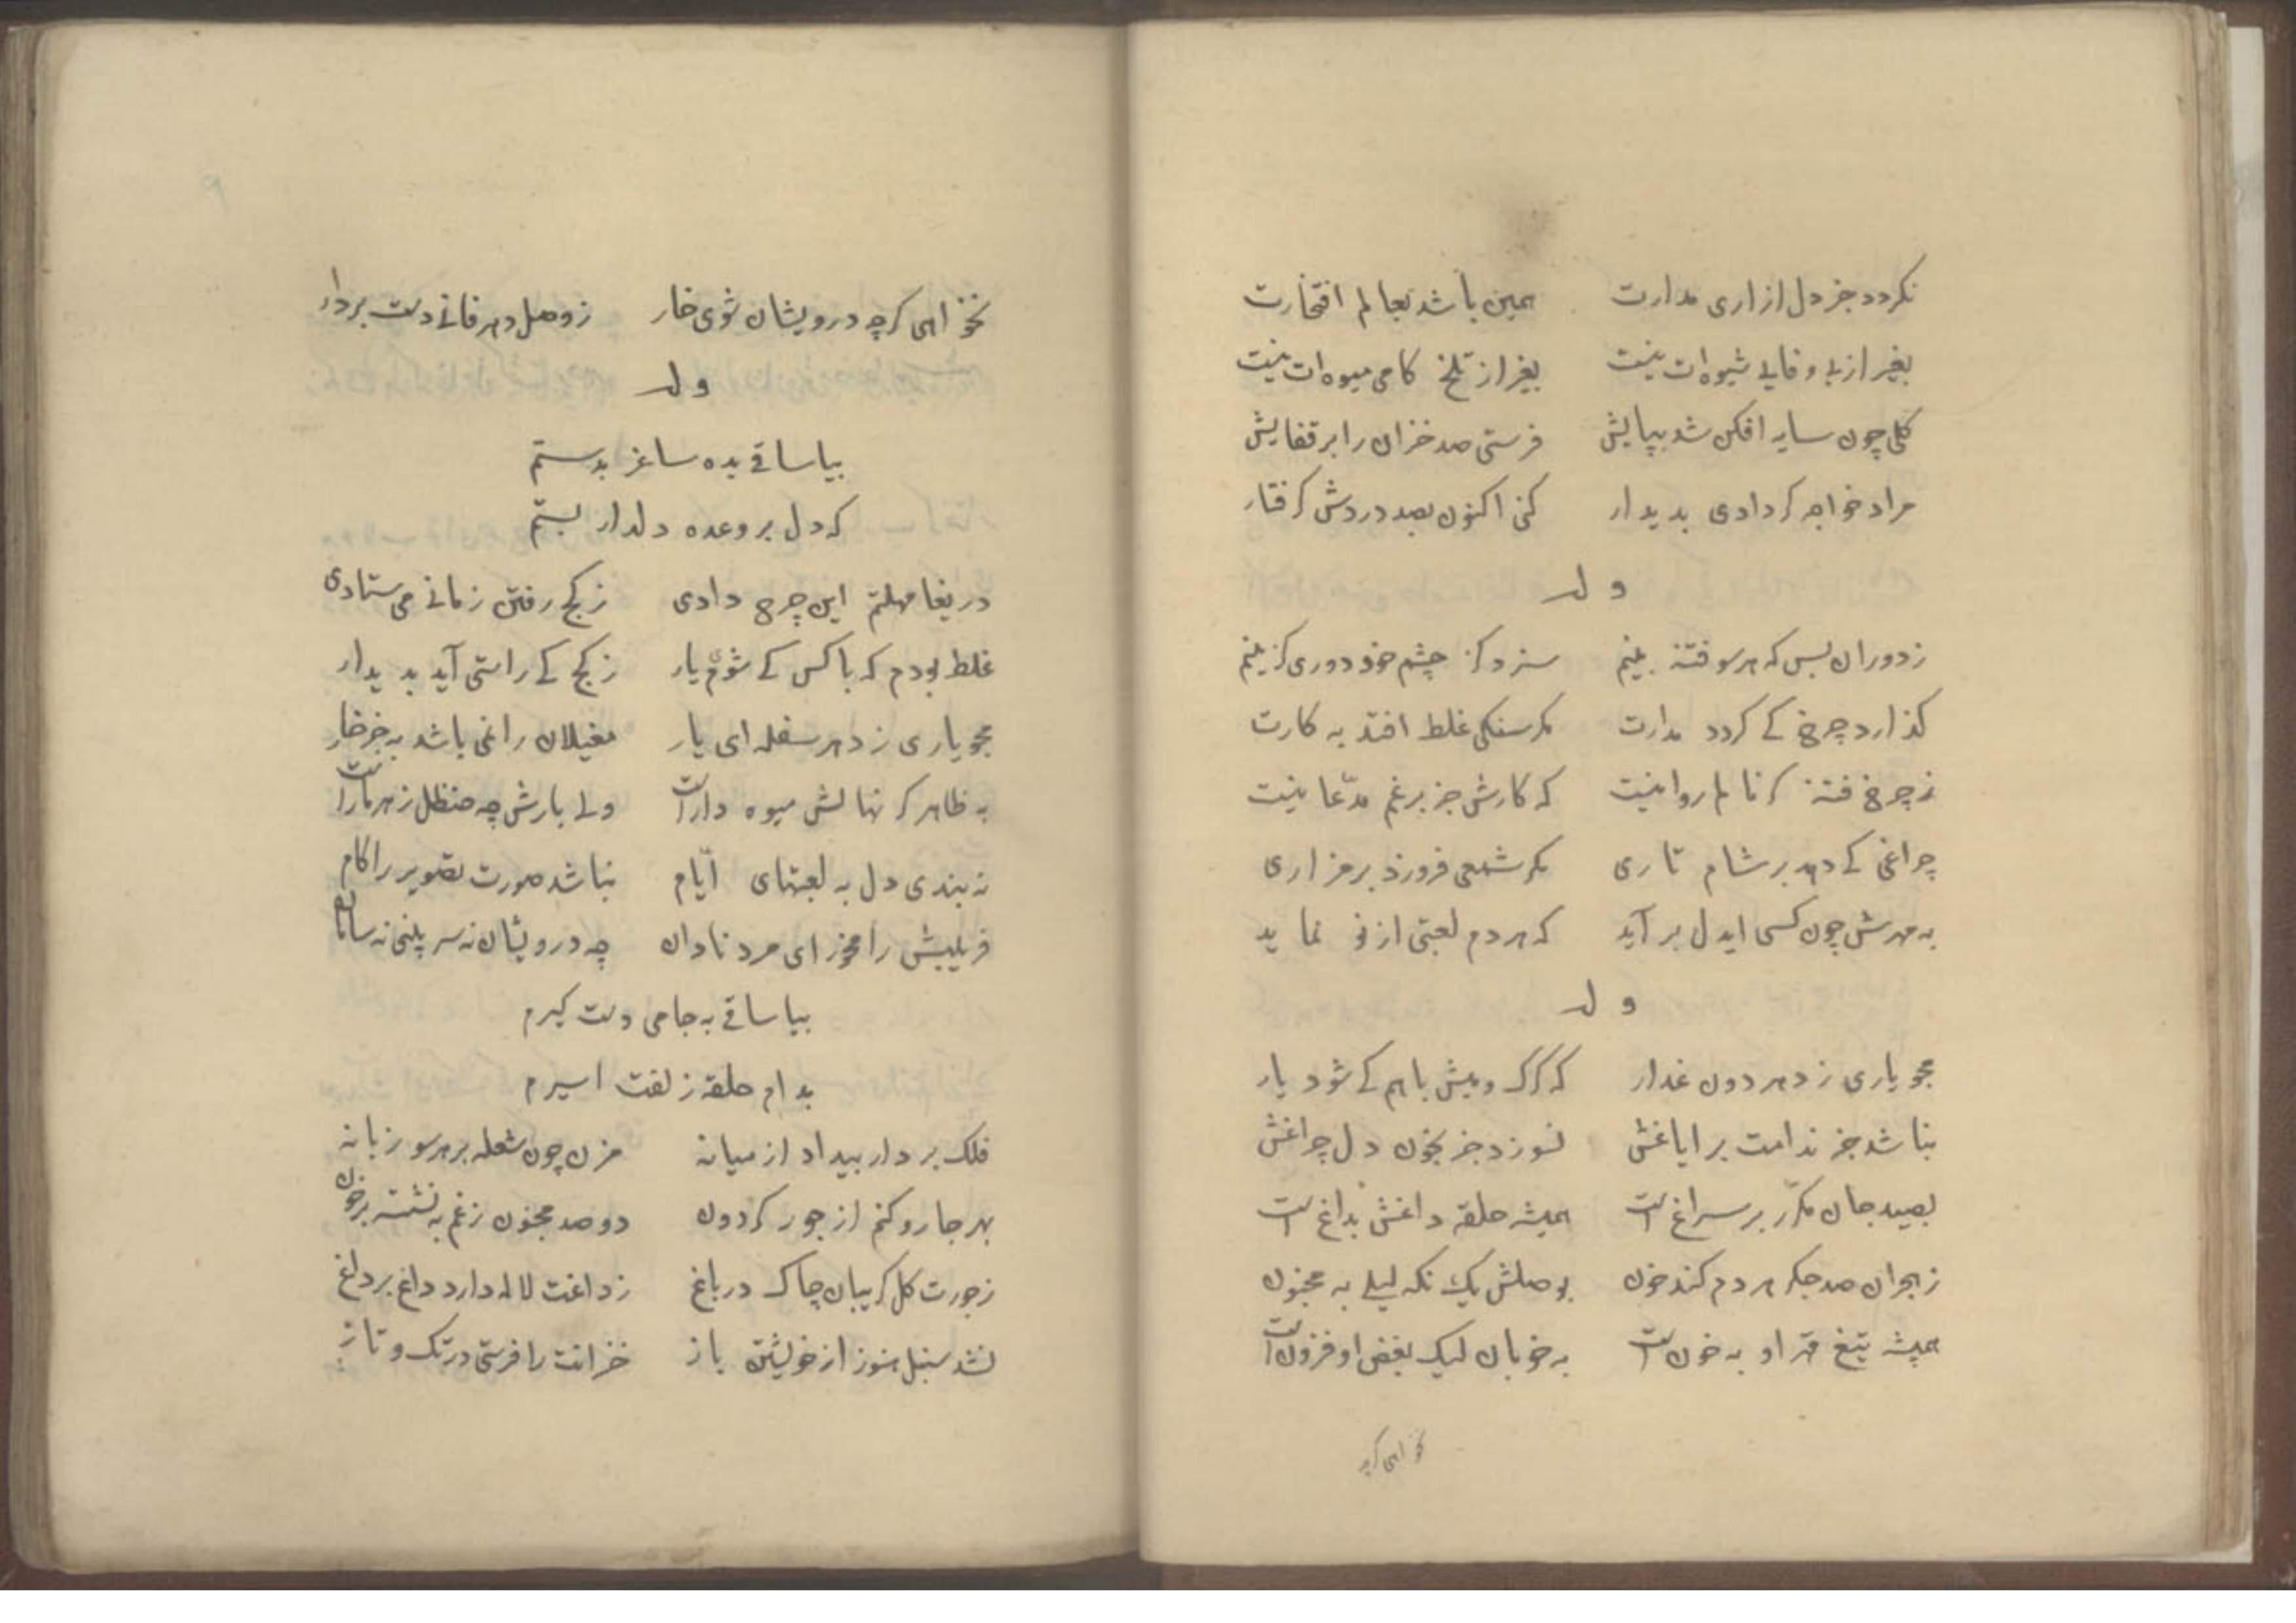 نکردد جز دل ازاری مدارت همین باشد بعالم افتخارت
بغیر از بی وفایی شیوه ات نیست بغیر از تلخ کامی میوه ات نیست
کلی چون سایه افکن شد بپایش فرستی صد خزان را بر قفایش
مراد خواجه کر دادی بدیدار کنی اکنون بصد دردش کرفتار
وله
ز دوران بس که هر سو فتنه بینم سزد کز چشم خود دوری کزینم
کذارد چرخ کی کردد مدارت مکر سنکی غلط افتد به کارت
ز چرخ فتنه کر نالم روا نیست که کارش جز برغم مدّعا نیست
چراغی کی دهد بر شام تاری مکر شمعی فروزد بر مزاری
به مهرش چون کسی ایدل بر آید که هر دم لعبتی از نو نماید
وله
مجو یاری ز دهر دون غدار که کرک و میش باهم کی شود یار
نباشد جز ندامت بر ایاغش نسوزد جز بخون دل چراغش
بصید جان مکرّر بر سراغ است همیشه حلقه داغش بداغ است
ز هجران صد جکر هر دم کند خون بوصلش یک نکه لیلی به مجنون
همیشه تیغ قهر او به خون است به خوبان لیک بغض او فزون است
نخواهی کرچه
نخواهی کرچه درویشان شوی خار ز وصل دهر فانی دست بردار
وله
بیا ساقی بده ساغر بدستم
که دل بر وعده دلدار بستم
دریغا مهلتم این چرخ دادی ز کج رفتن زمانی می ستادی
غلط بودم که با کس کی شوی یار ز کج کی راستی آید بدیدار
مجو یاری ز دهر سفله ای یار مغیلان را نمی باشد به جز خار
به ظاهر کر نهالش میوه دار است ولی بارش چه حنظل زهرمار است
نه بندی دل به لعبتهای ایّام نباشد صورت تصویر را کام
فریبش را مخور ای مرد نادان چه درویشان نه سر بینی نه سامان
بیا ساقی به جامی دست کیرم
بدام حلقه زلفت اسیرم
فلک بردار بیداد از میانه مزن چون شعله بر هر سو زبانه
بهر جا رو کنم از جور کردون دو صد مجنون ز غم به نشسته بر خون
ز جورت کل کریبان چاک در باغ ز داغت لاله دارد داغ بر داغ
نشد سنبل هنوز از خویشتن باز خزانت را فرستی در تک و تاز